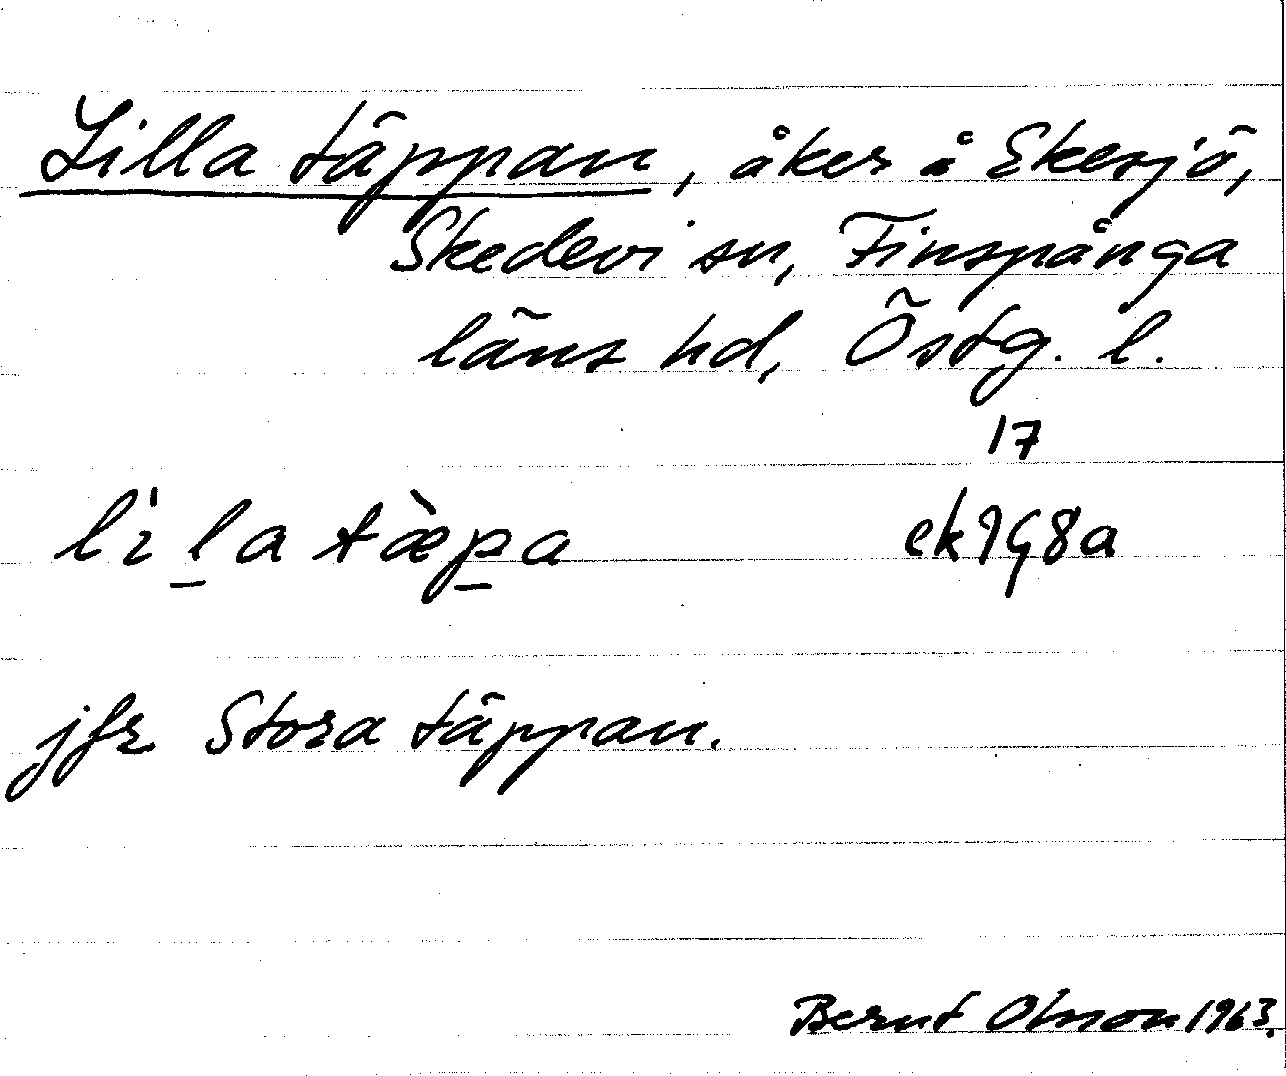 Lilla täppan, åker å Ekesjö,
Skedevi sn, Finspånga
läns hd, Östg. l.
17
lìla tæ̀pa ek 9G8a
jfr Stora täppan.
Bernt Olsson 1963.